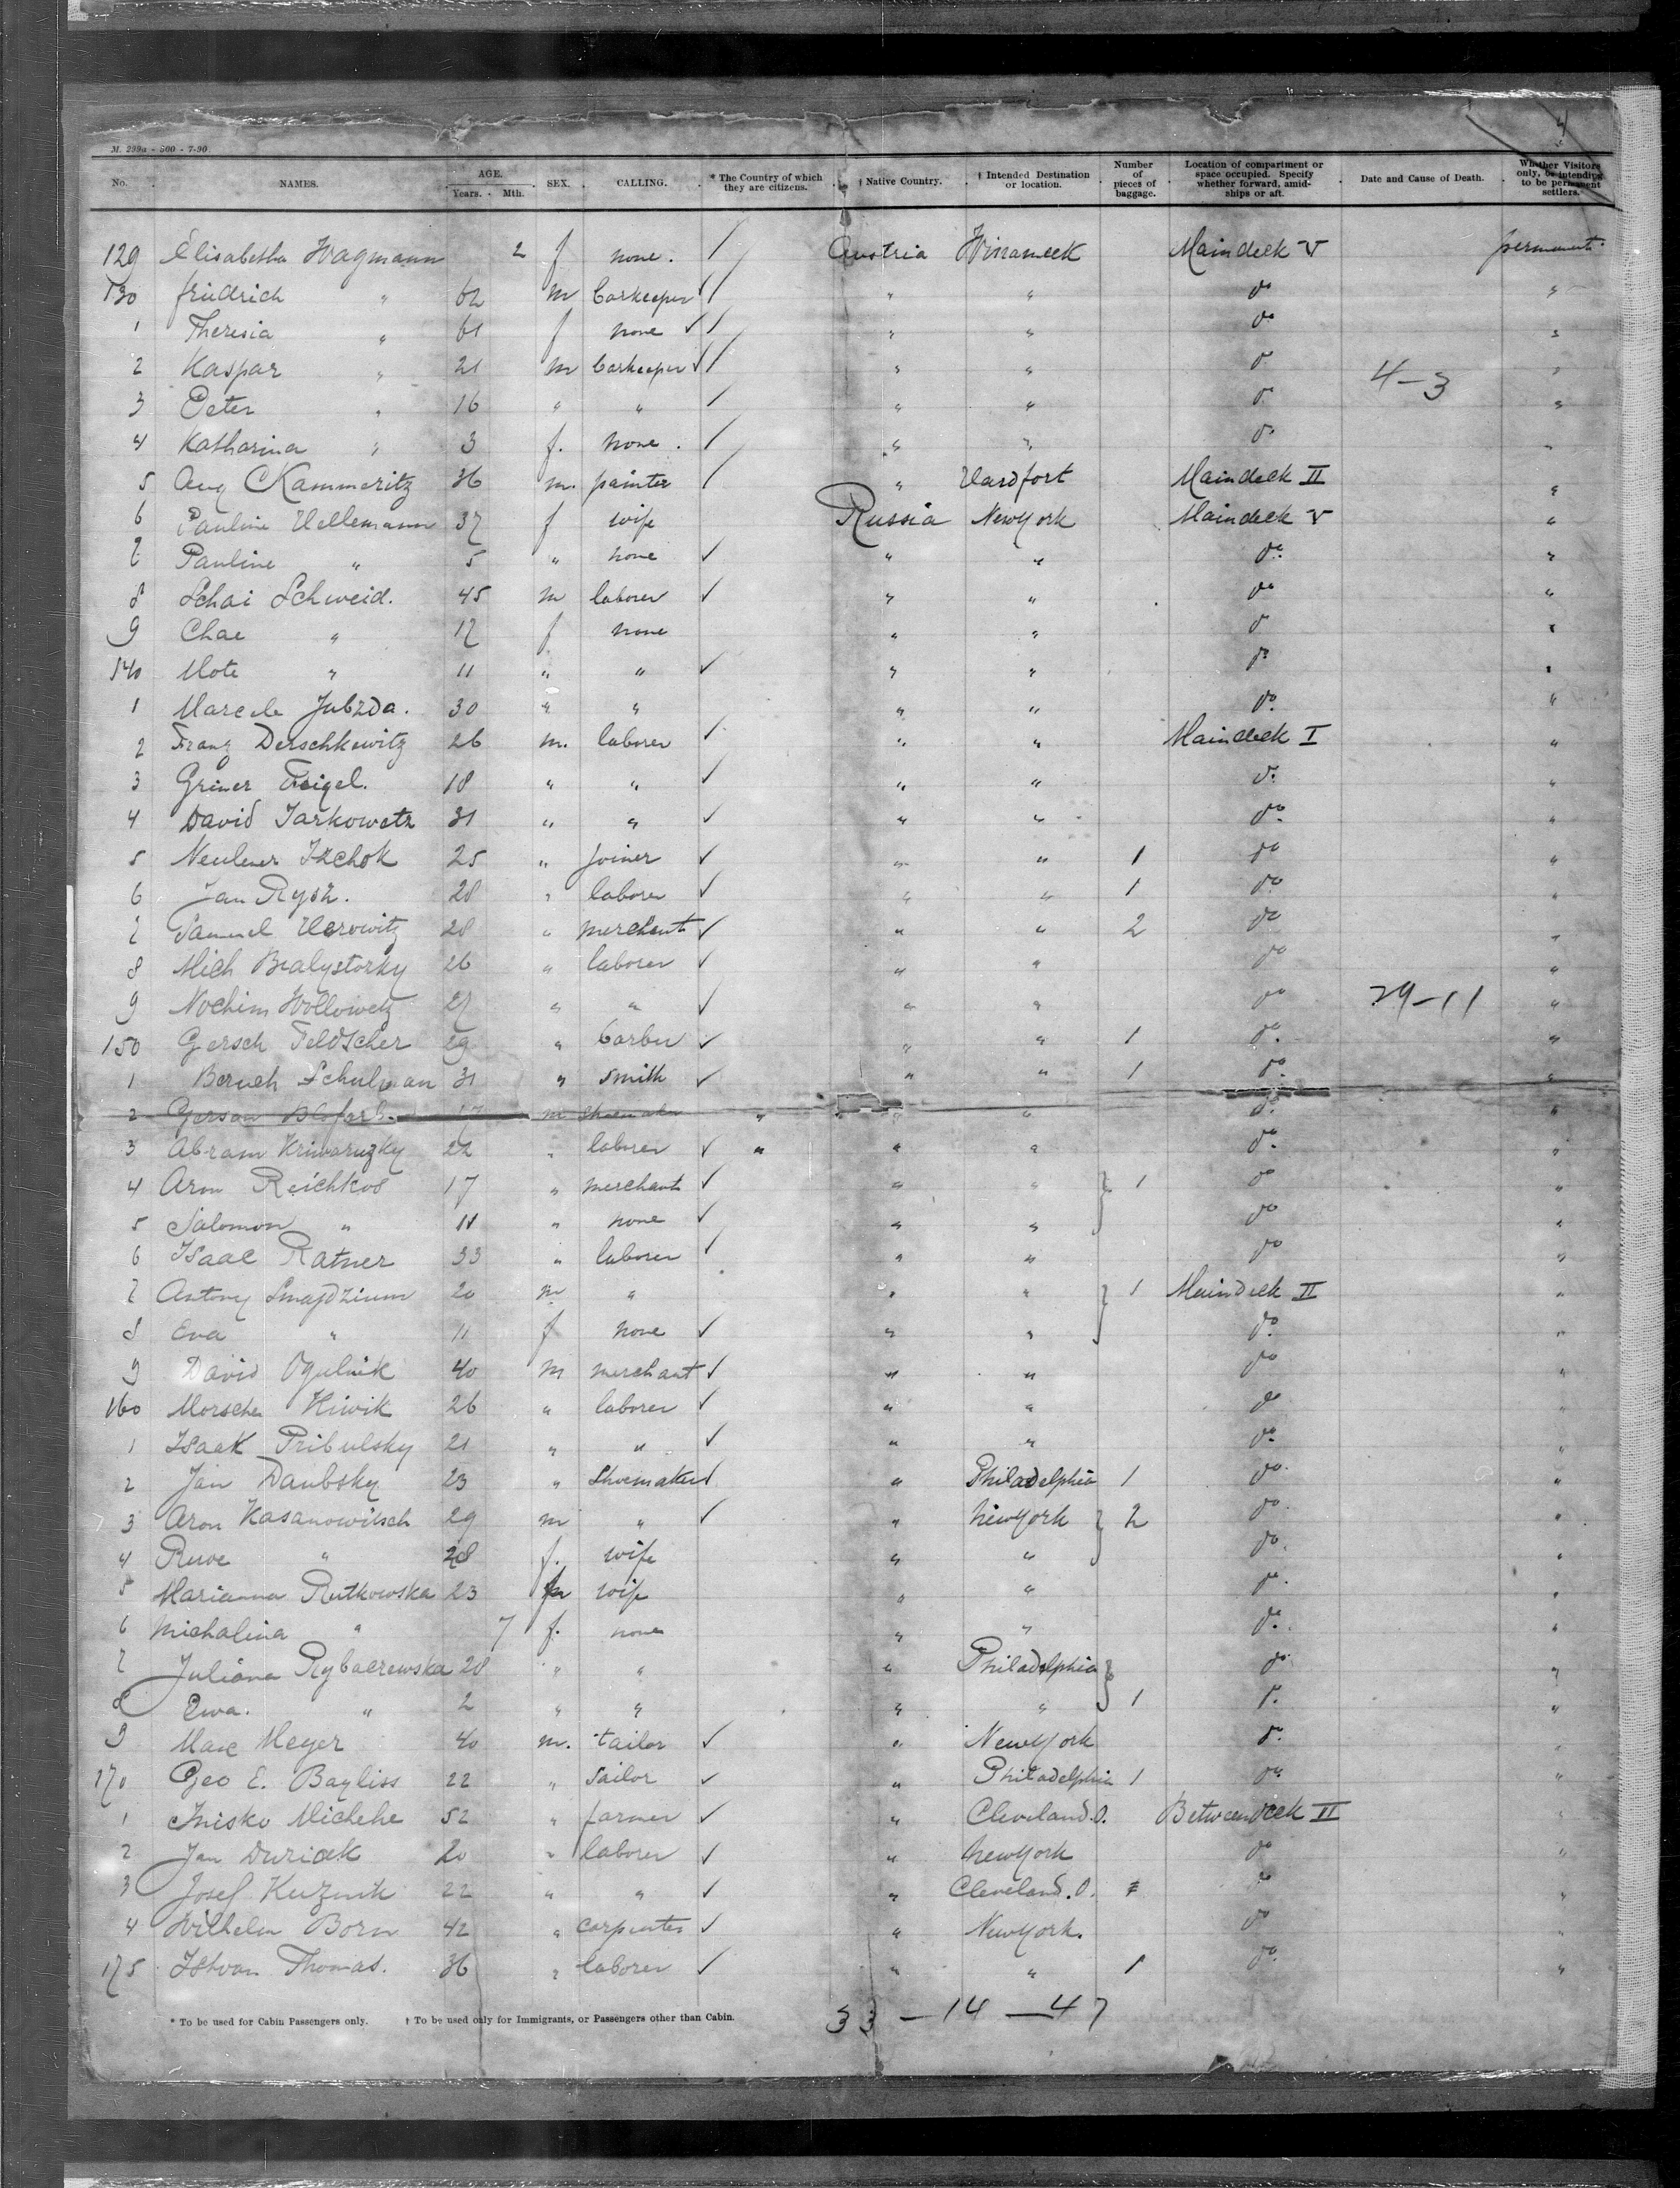 4
M. 299a - 500 - 7-90
No. NAMES. AGE. Years. Mth. SEX. CALLING. * The Country of which they are citizens. † Native Country. † Intended Destination or location. Number of pieces of baggage. Location of compartment or space occupied. Specify whether forward, amidships or aft. Date and Cause of Death. Whether Visitors only, or intending to be permanent settlers.
129 Elisabetha Wagmann 2 f none. / Austria Winameek Maindeck V permanent
130 friedrich " 62 m barkeeper / " " do "
1 Theresia " 61 f none ✓ / " " do "
2 Kaspar " 21 m barkeeper ✓ / " " do 4-3 "
3 Peter " 16 " " / " " do "
4 Katharina " 3 f. none. / " " do "
5 Aug Kammeritz 36 m. painter / " Hardfort Maindeck II "
6 Pauline Hellemann 37 f wife Russia New York Maindeck V "
7 Pauline " 5 " none ✓ " " do "
8 Schai Schweid. 45 m laborer ✓ " " do "
9 Chae " 17 f none " " do "
140 Mote " 11 " " ✓ " " do "
1 Marcele Jubzda. 30 " " " " do "
2 Franz Derschkewitz 26 m. laborer ✓ " " Maindeck I "
3 Griner Feigel. 18 " " ✓ " " do "
4 David Tarkowetz 31 " " ✓ " " do "
5 Itzchok 25 " joiner ✓ " " 1 do "
6 Jan Rysz. 28 " laborer ✓ " " 1 do "
7 Samuel Horowitz 28 " merchant ✓ " " 2 do "
8 Mich Bialystorky 26 " laborer ✓ " " do "
9 Nochim Wollowetz 27 " " ✓ " " do 29-11 "
150 Gersch Feldscher 29 " barber ✓ " " 1 do "
1 Beruch Schulman 31 " smith ✓ " " 1 do "
2 Gerson 17 m shoemaker " " " do "
3 Abram Kriwaruzky 22 " laborer ✓ " " " do "
4 Aron Reichkos 17 " merchant ✓ " " 1 do "
5 Salomon " 11 " none ✓ " " do "
6 Isaac Ratner 33 " laborer ✓ " " do "
7 Antony Smajdzium 20 m " " " 1 Maindeck II "
8 Eva " 11 f none ✓ " " do "
9 David Ogulnik 40 m merchant ✓ " " do "
160 Morsche Hiwik 26 " laborer ✓ " " do "
1 Isaak Pribulsky 21 " " ✓ " " do "
2 Jan Daubsky 23 " Shoemaker ✓ " Philadelphia 1 do "
3 Aron Kasanowitsch 29 m " ✓ " New York 2 do "
4 Ruve " 28 f. wife " " do "
5 Marianna Rutkowska 23 wife " " do "
6 Michalina " 7 f. none " " do "
7 Juliana Rybacrewska 28 " " " Philadelphia do "
8 Ewa. " 2 " " " " 1 do "
9 Max Meyer 40 m. tailor ✓ " New York do "
170 Geo E. Bayliss 22 " Sailor ✓ " Philadelphia 1 do "
1 Michehe 52 " farmer ✓ " Cleveland. O. Betweendeck II "
2 Jan Duricek 20 " laborer ✓ " New York do "
3 Josef Kuznik 22 " " ✓ " Cleveland. O. do "
4 Wilhelm Born 42 " carpenter ✓ " New York. do "
175 Istvan Thomas. 36 " laborer ✓ " " 1 do "
* To be used for Cabin Passengers only. † To be used only for Immigrants, or Passengers other than Cabin.
33 - 14 - 47